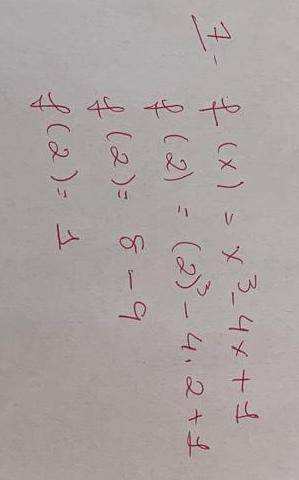 7- f(x) = x³-4x+1
f(2) = (2)³-4.2+1
f(2)= 8-9
f(2)= 1